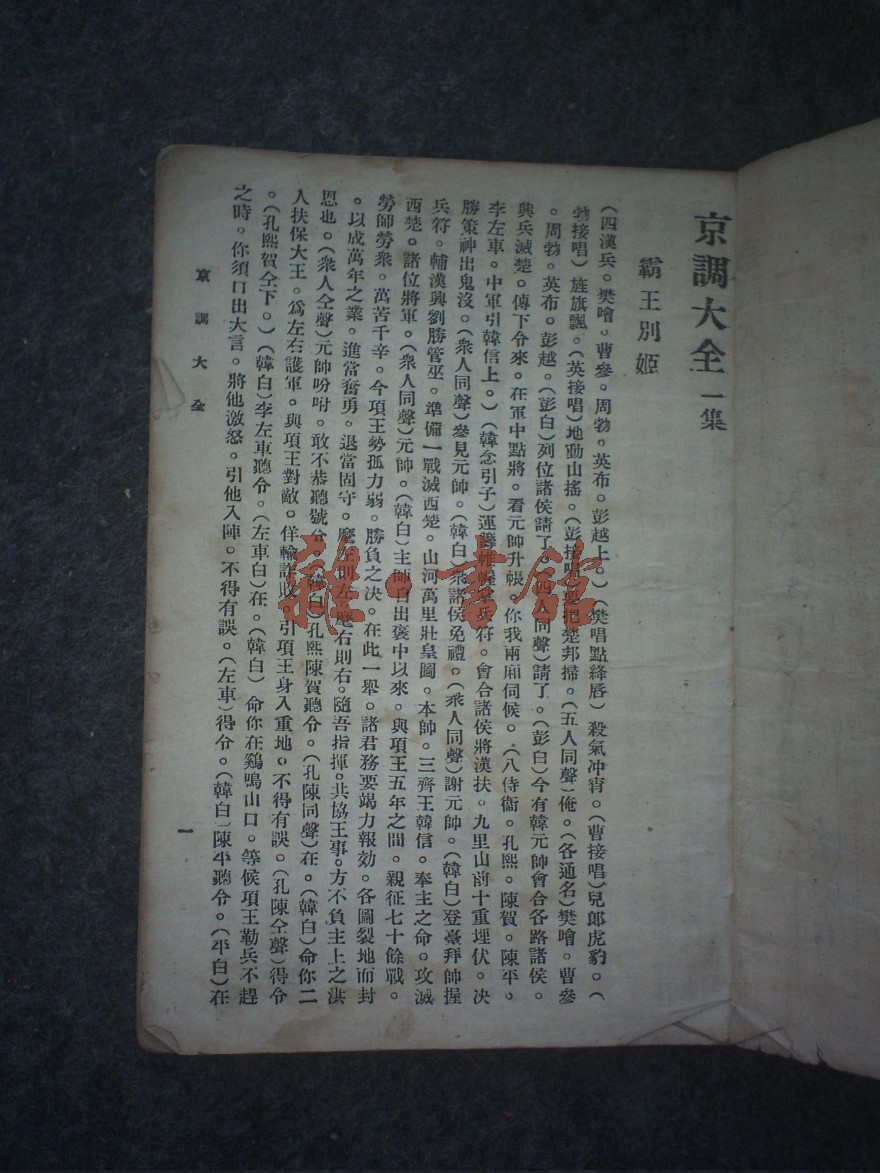 京調大全 一集
霸王別姬
(四漢兵。樊噲。曹參。周勃。英布。彭越上。)(樊唱點絳唇)殺氣冲霄。(曹接唱)兒郎虎豹。(
勃接唱)旌旗飄。(英接唱)地動山搖。(彭接唱)要把楚邦掃。(五人同聲)俺。(各通名)樊噲。曹參
。周勃。英布。彭越。(彭白)列位諸侯請了。(四人同聲)請了。(彭白)今有韓元帥會合各路諸侯。
興兵滅楚。傳下令來。在軍中點將。看元帥升帳。你我兩廂伺候。(八侍衞。孔熙。陳賀。陳平。
李左車。中軍引韓信上。)(韓念引子)運籌帷幄掌兵符。會合諸侯將漢扶。九里山前十重埋伏。决
勝策神出鬼沒。(衆人同聲)參見元帥。(韓白)衆諸侯免禮。(衆人同聲)謝元帥。(韓白)登臺拜帥握
兵符。輔漢興劉勝管巫。準備一戰滅西楚。山河萬里壯皇圖。本帥。三齊王韓信。奉主之命。攻滅
西楚。諸位將軍。(衆人同聲)元帥。(韓白)主帥自出褒中以來。與項王五年之間。親征七十餘戰。
勞師勞衆。萬苦千辛。今項王勢孤力弱。勝負之决。在此一舉。諸君務要竭力報効。各圖裂地而封
。以成萬年之業。進當奮勇。退當固守。麾左則左麾右則右。隨吾指揮。共協王事。方不負主上之洪
恩也。(衆人仝聲)元帥吩咐。敢不恭聽號令。(韓白)孔熙陳賀聽令。(孔陳同聲)在。(韓白)命你二
人扶保大王。爲左右護軍。與項王對敵。佯輸詐敗。引項王身入重地。不得有誤。(孔陳仝聲)得令
。(孔熙賀仝下。)(韓白)李左車聽令。(左車白)在。(韓白)命你在鷄鳴山口。等候項王勒兵不趕
之時。你須口出大言。將他激怒。引他入陣。不得有誤。(左車)得令。(韓白)陳平聽令。(平白)在
京調大全
一
雜·書館